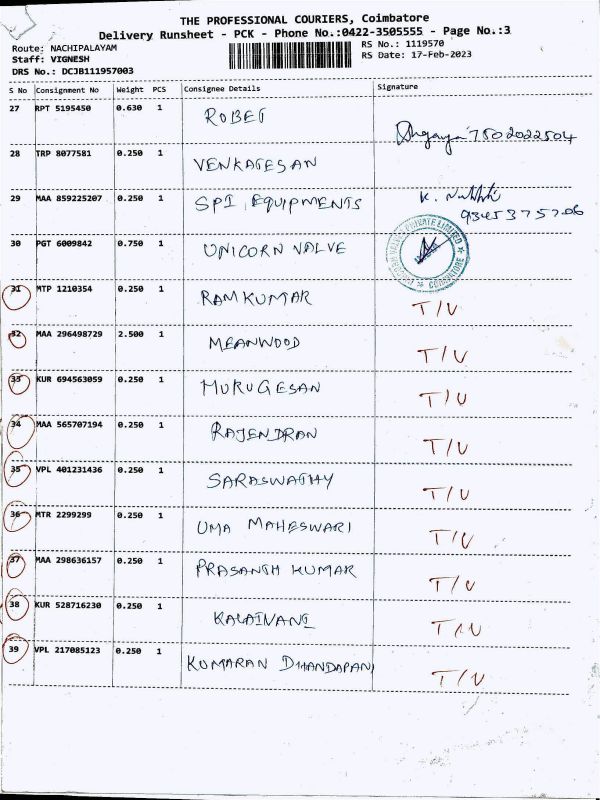 THE PROFESSIONAL COURIERS, Coimbatore
Delivery Runsheet - PCK - Phone No.:0422-3505555 - Page No.:3
Route: NACHIPALAYAM
RS No.: 1119570
Staff: VIGNESH
RS Date: 17-Feb-2023
DRS No.: DCJB111957003
S No Consignment No Weight PCS Consignee Details Signature
27 RPT 5195450 0.630 1 ROBET
7502022504
28 TRP 8077581 0.250 1 VENKATESAN
29 MAA 859225207 0.250 1 SPI EQUIPMENTS K.
9345375706
30 PGT 6009842 0.750 1 UNICORN VALVE PRIVATE LIMITED COIMBATORE
31 MTP 1210354 0.250 1 RAMKUMAR T/U
32 MAA 296498729 2.500 1 MEANWOOD T/U
33 KUR 694563059 0.250 1 MURUGESAN T/U
34 MAA 565707194 0.250 1 RAJENDRAN T/U
35 VPL 401231436 0.250 1 SARASWATHY T/U
36 MTR 2299299 0.250 1 UMA MAHESWARI T/U
37 MAA 298636157 0.250 1 PRASANTH KUMAR T/U
38 KUR 528716230 0.250 1 KALAIVANI T/U
39 VPL 217085123 0.250 1 KUMARAN DHANDAPANI T/U